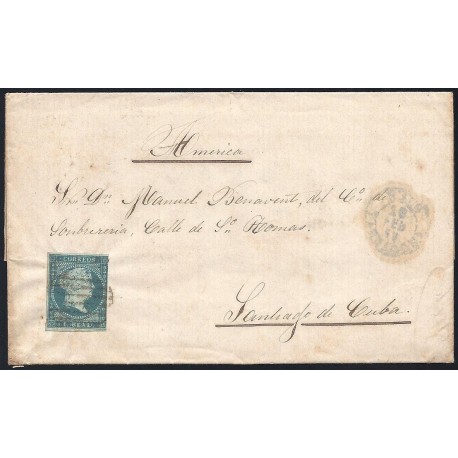 America
Sor. Dn. Manuel Bonavent, del Co. de
Sonbrereria, Calle de Sn. Tomas.
CORREOS
1 REAL
Santiago de Cuba.